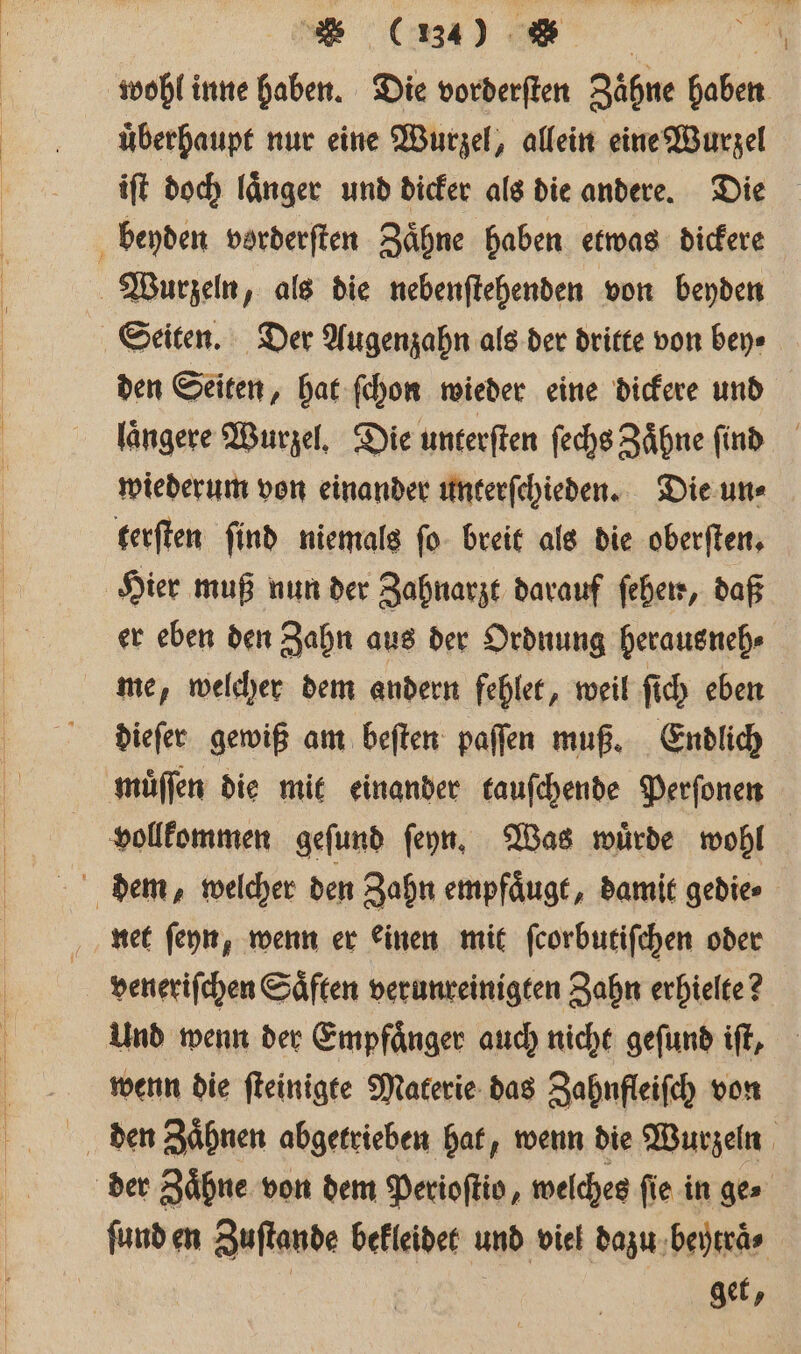 ❁ (134) ❁
wohl inne haben. Die vorderſten Zaͤhne haben
uͤberhaupt nur eine Wurzel, allein eine Wurzel
iſt doch laͤnger und dicker als die andere. Die
beyden vorderſten Zaͤhne haben etwas dickere
Wurzeln, als die nebenſtehenden von beyden
Seiten. Der Augenzahn als der dritte von bey⸗
den Seiten, hat ſchon wieder eine dickere und
laͤngere Wurzel. Die unterſten ſechs Zaͤhne ſind
wiederum von einander unterſchieden. Die un⸗
terſten ſind niemals ſo breit als die oberſten.
Hier muß nun der Zahnarzt darauf ſehen, daß
er eben den Zahn aus der Ordnung herausneh⸗
me, welcher dem andern fehlet, weil ſich eben
dieſer gewiß am beſten paſſen muß. Endlich
muͤſſen die mit einander tauſchende Perſonen
vollkommen geſund ſeyn. Was wuͤrde wohl
dem, welcher den Zahn empfaͤugt, damit gedie⸗
net ſeyn, wenn er einen mit ſcorbutiſchen oder
veneriſchen Saͤften verunreinigten Zahn erhielte?
Und wenn der Empfaͤnger auch nicht geſund iſt,
wenn die ſteinigte Materie das Zahnfleiſch von
den Zaͤhnen abgetrieben hat, wenn die Wurzeln
der Zaͤhne von dem Perioſtio, welches ſie in ge⸗
ſund en Zuſtande bekleidet und viel dazu beytraͤ⸗
get,